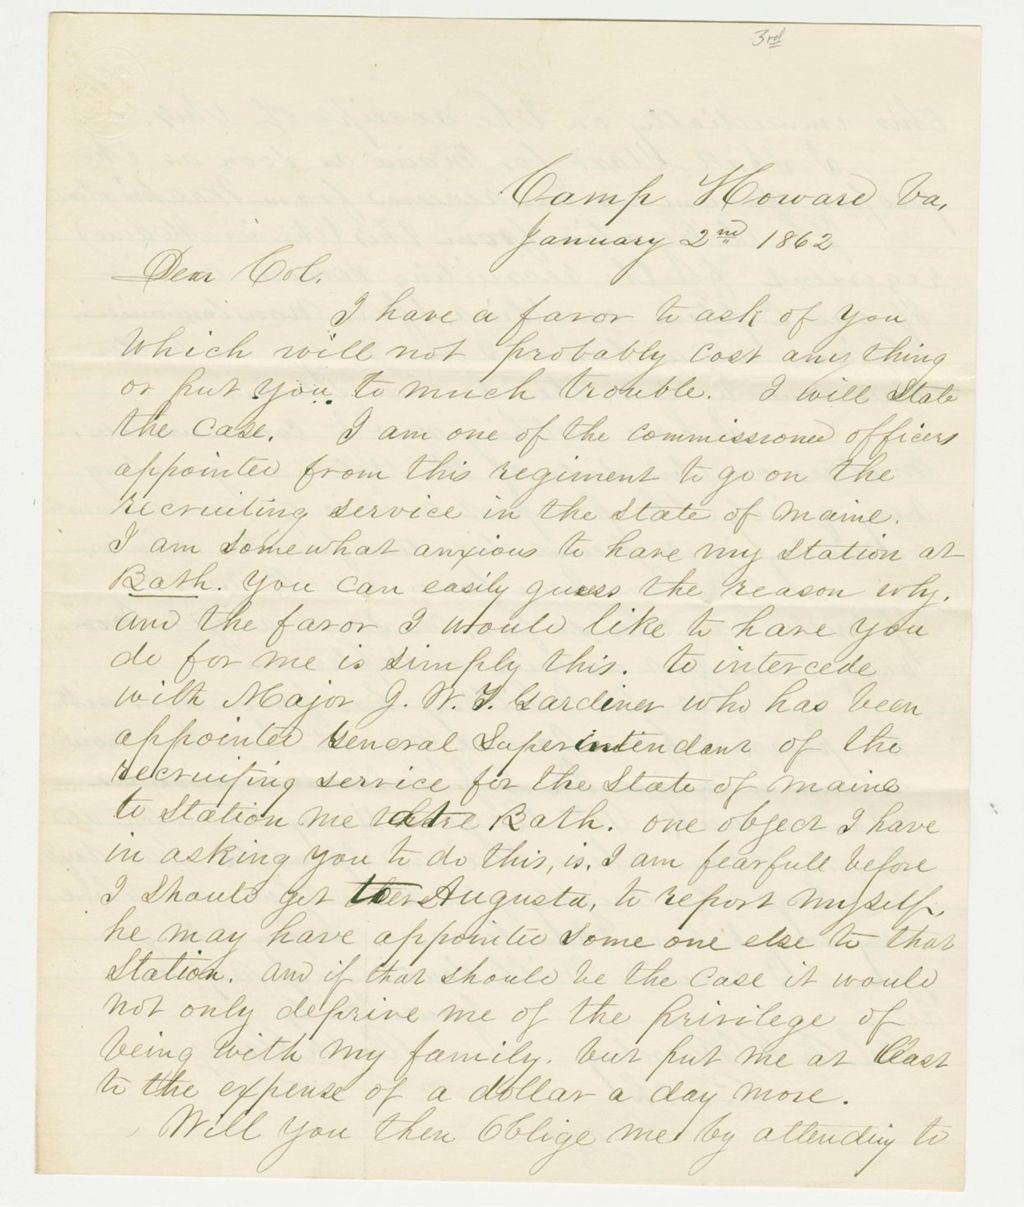 3rd
Camp Howard Va,
January 2nd 1862
Dear Col.
I have a favor to ask of you
which will not probably cost any thing
or put you to much trouble. I will State
the case. I am one of the commissioned officers
appointed from this regiment to go on the
recruiting service in the State of Maine.
I am somewhat anxious to have my Station at
Bath. You can easily guess the reason why.
and the favor I would like to have you
do for me is simply this. to intercede
with Major J. W. T. Gardiner who has been
appointed General Superintendant of the
recruiting service for the State of Maine
to Station me at Bath. one object I have
in asking you to do this, is, I am fearfull before
I should get to Augusta, to report myself,
he may have appointed some one else to that
Station. and if that should be the case it would
not only deprive me of the privilege of
being with my family. but put me at least
to the expense of a dollar a day more.
Will you then Oblige me by attending to